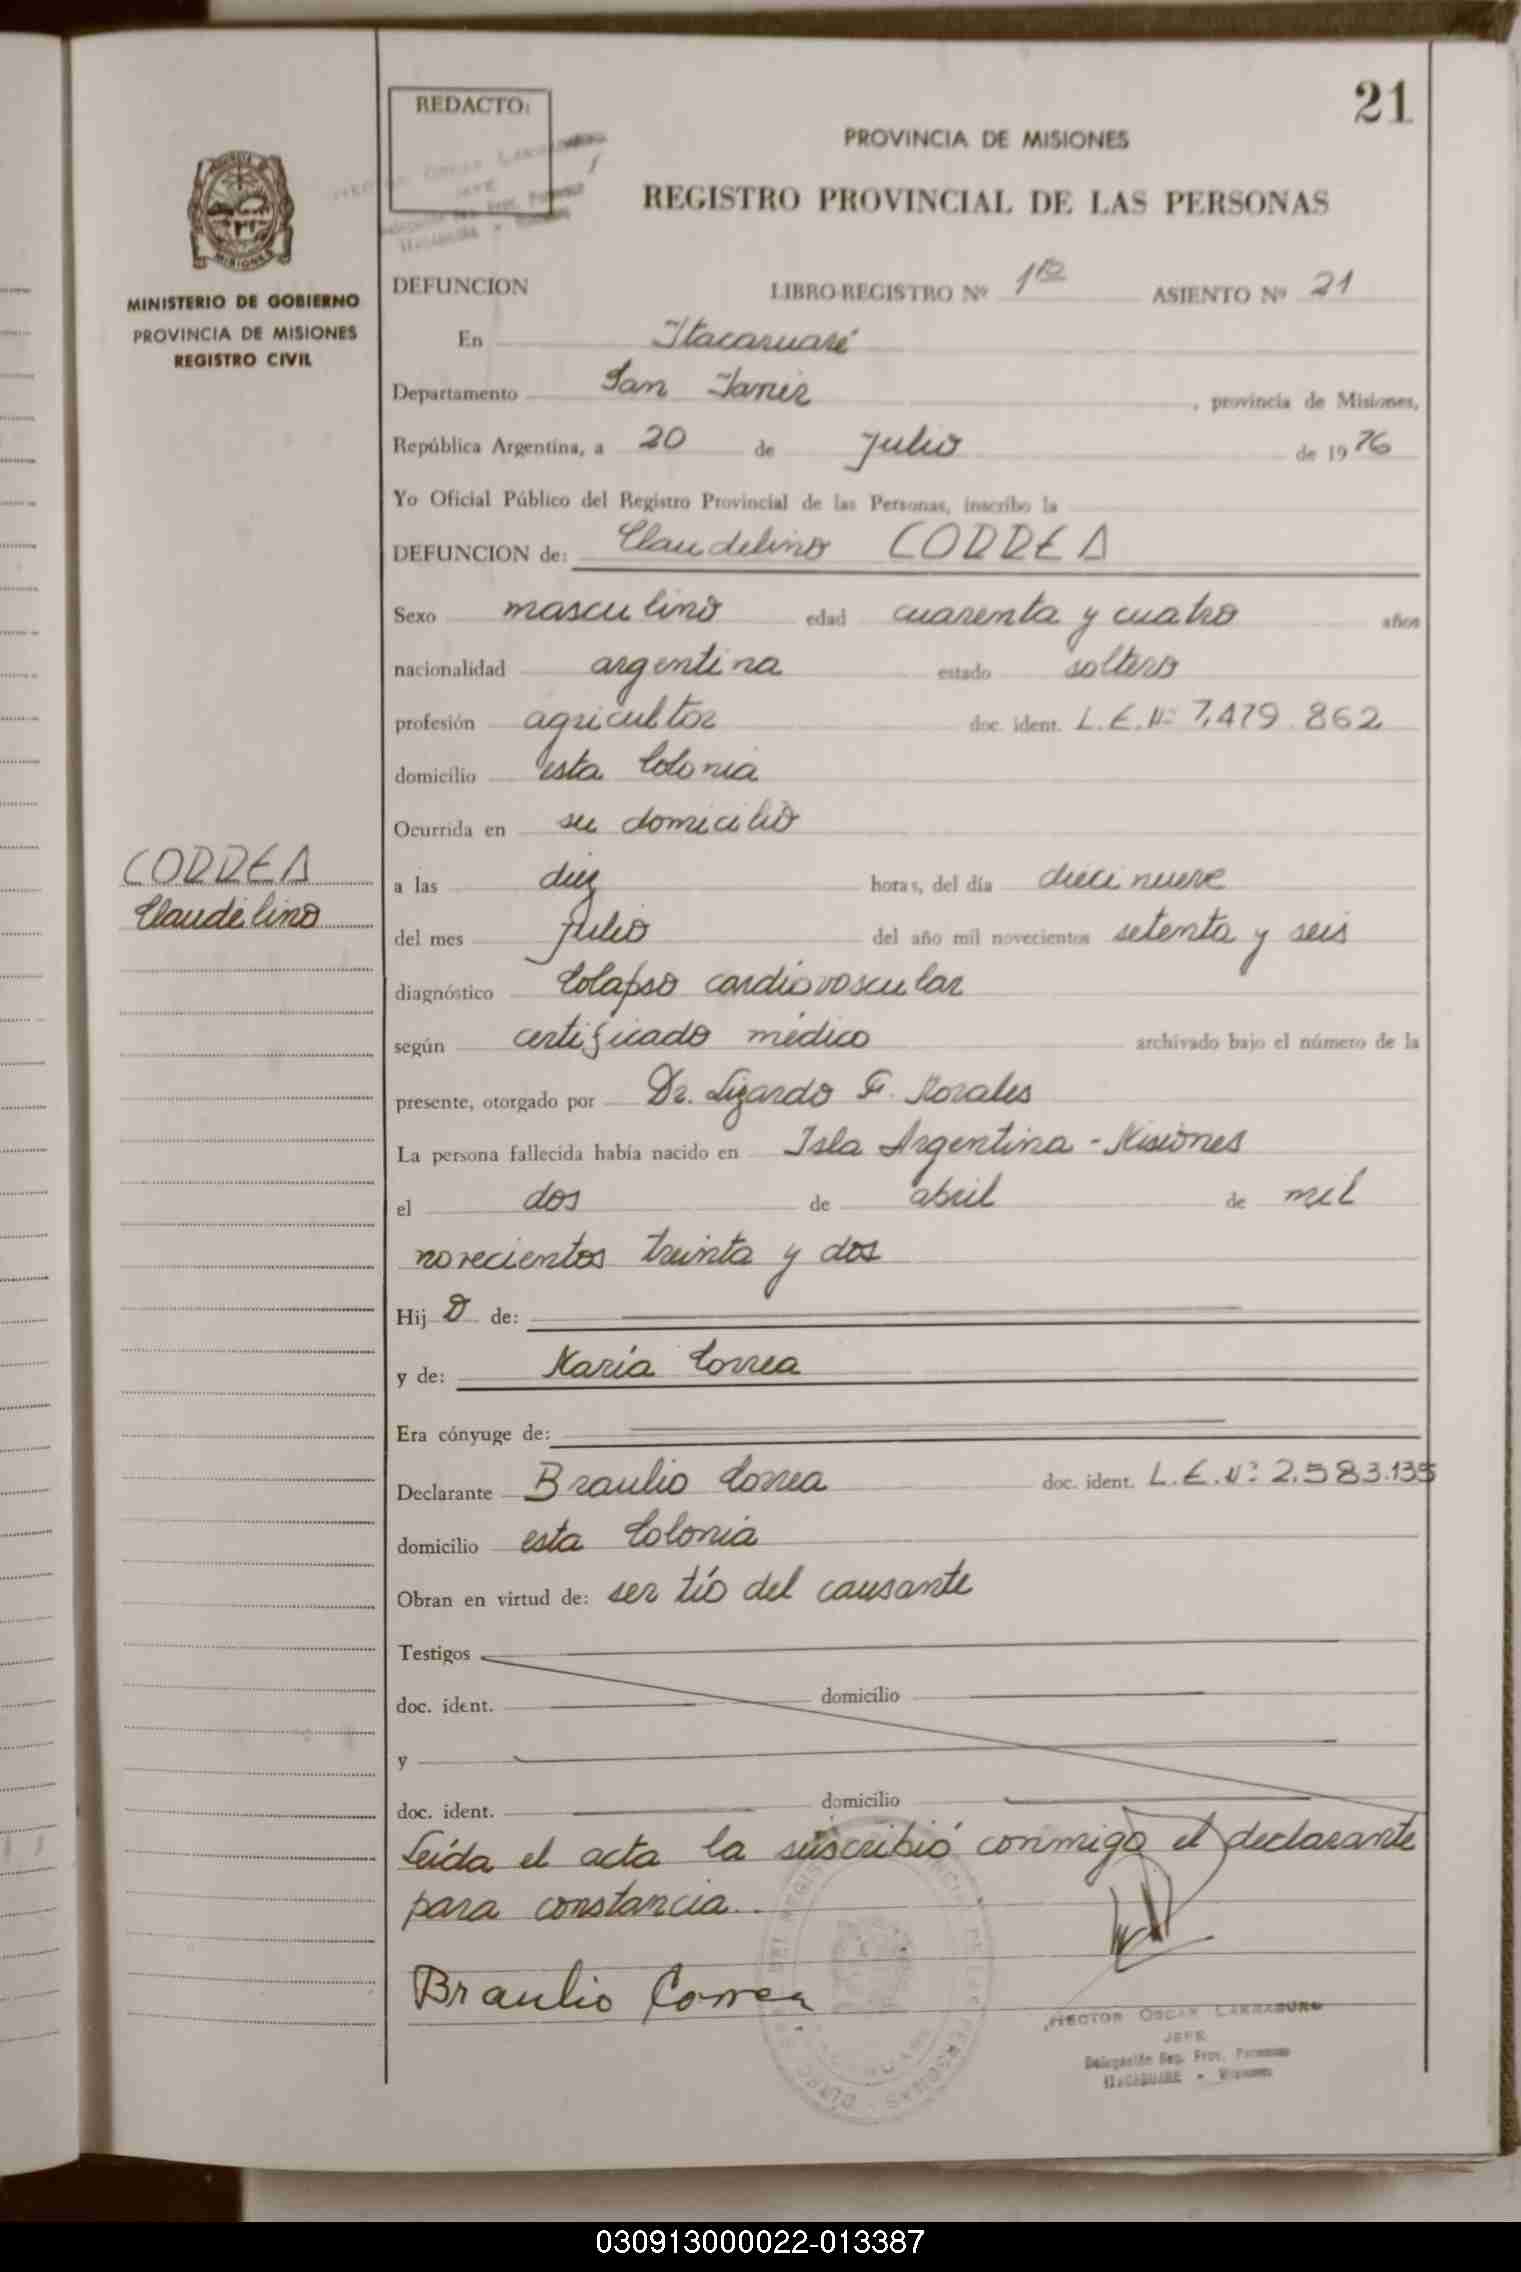 21
REDACTO:
PROVINCIA DE MISIONES
REGISTRO PROVINCIAL DE LAS PERSONAS
MISIONES
MINISTERIO DE GOBIERNO
PROVINCIA DE MISIONES
REGISTRO CIVIL
DEFUNCION LIBRO-REGISTRO Nº 1ro ASIENTO Nº 21
En Itacaruaré
Departamento San Javier, provincia de Misiones,
República Argentina, a 20 de julio de 1976
Yo Oficial Público del Registro Provincial de las Personas, inscribo la
DEFUNCION de: Claudelino CORREA
Sexo masculino edad cuarenta y cuatro años
nacionalidad argentina estado soltero
profesión agricultor doc. ident. L.E.Nº 7.479.862
domicilio esta Colonia
Ocurrida en su domicilio
CORREA
Claudelino
a las diez horas, del día diecinueve
del mes julio del año mil novecientos setenta y seis
diagnóstico Colapso cardiovascular
según certificado médico archivado bajo el número de la
presente, otorgado por Dr. Lizardo F. Morales
La persona fallecida había nacido en Isla Argentina - Misiones
el dos de abril de mil
novecientos treinta y dos
Hij o de:
y de: María Correa
Era cónyuge de:
Declarante Braulio Correa doc. ident. L.E.Nº 2.583.135
domicilio esta Colonia
Obran en virtud de: ser tío del causante
Testigos
doc. ident. domicilio
y
doc. ident. domicilio
Leída el acta la suscribió conmigo el declarante
para constancia.
Braulio Correa
HECTOR OSCAR LARRABURU
JEFE
Delegación Reg. Prov. Personas
ITACARUARE - Misiones
030913000022-013387